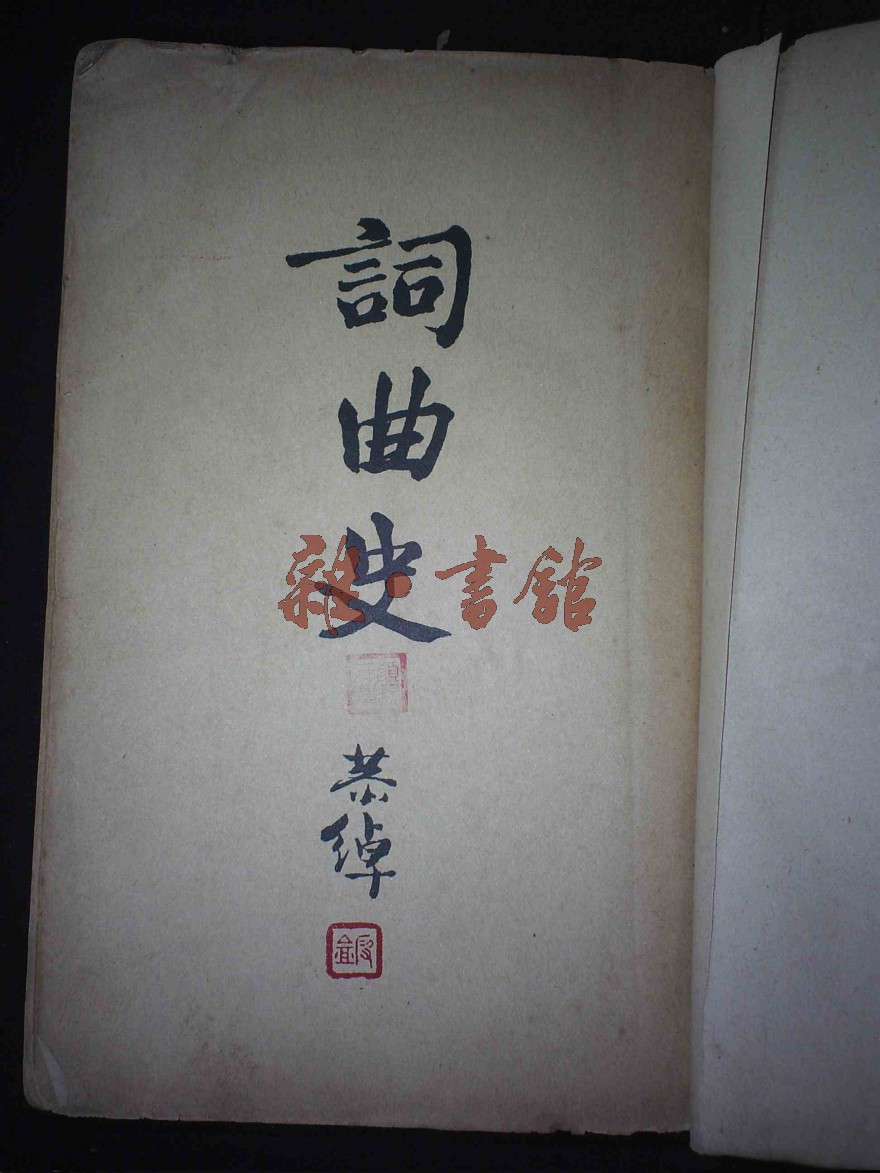 詞曲史
雜·書館
恭綽